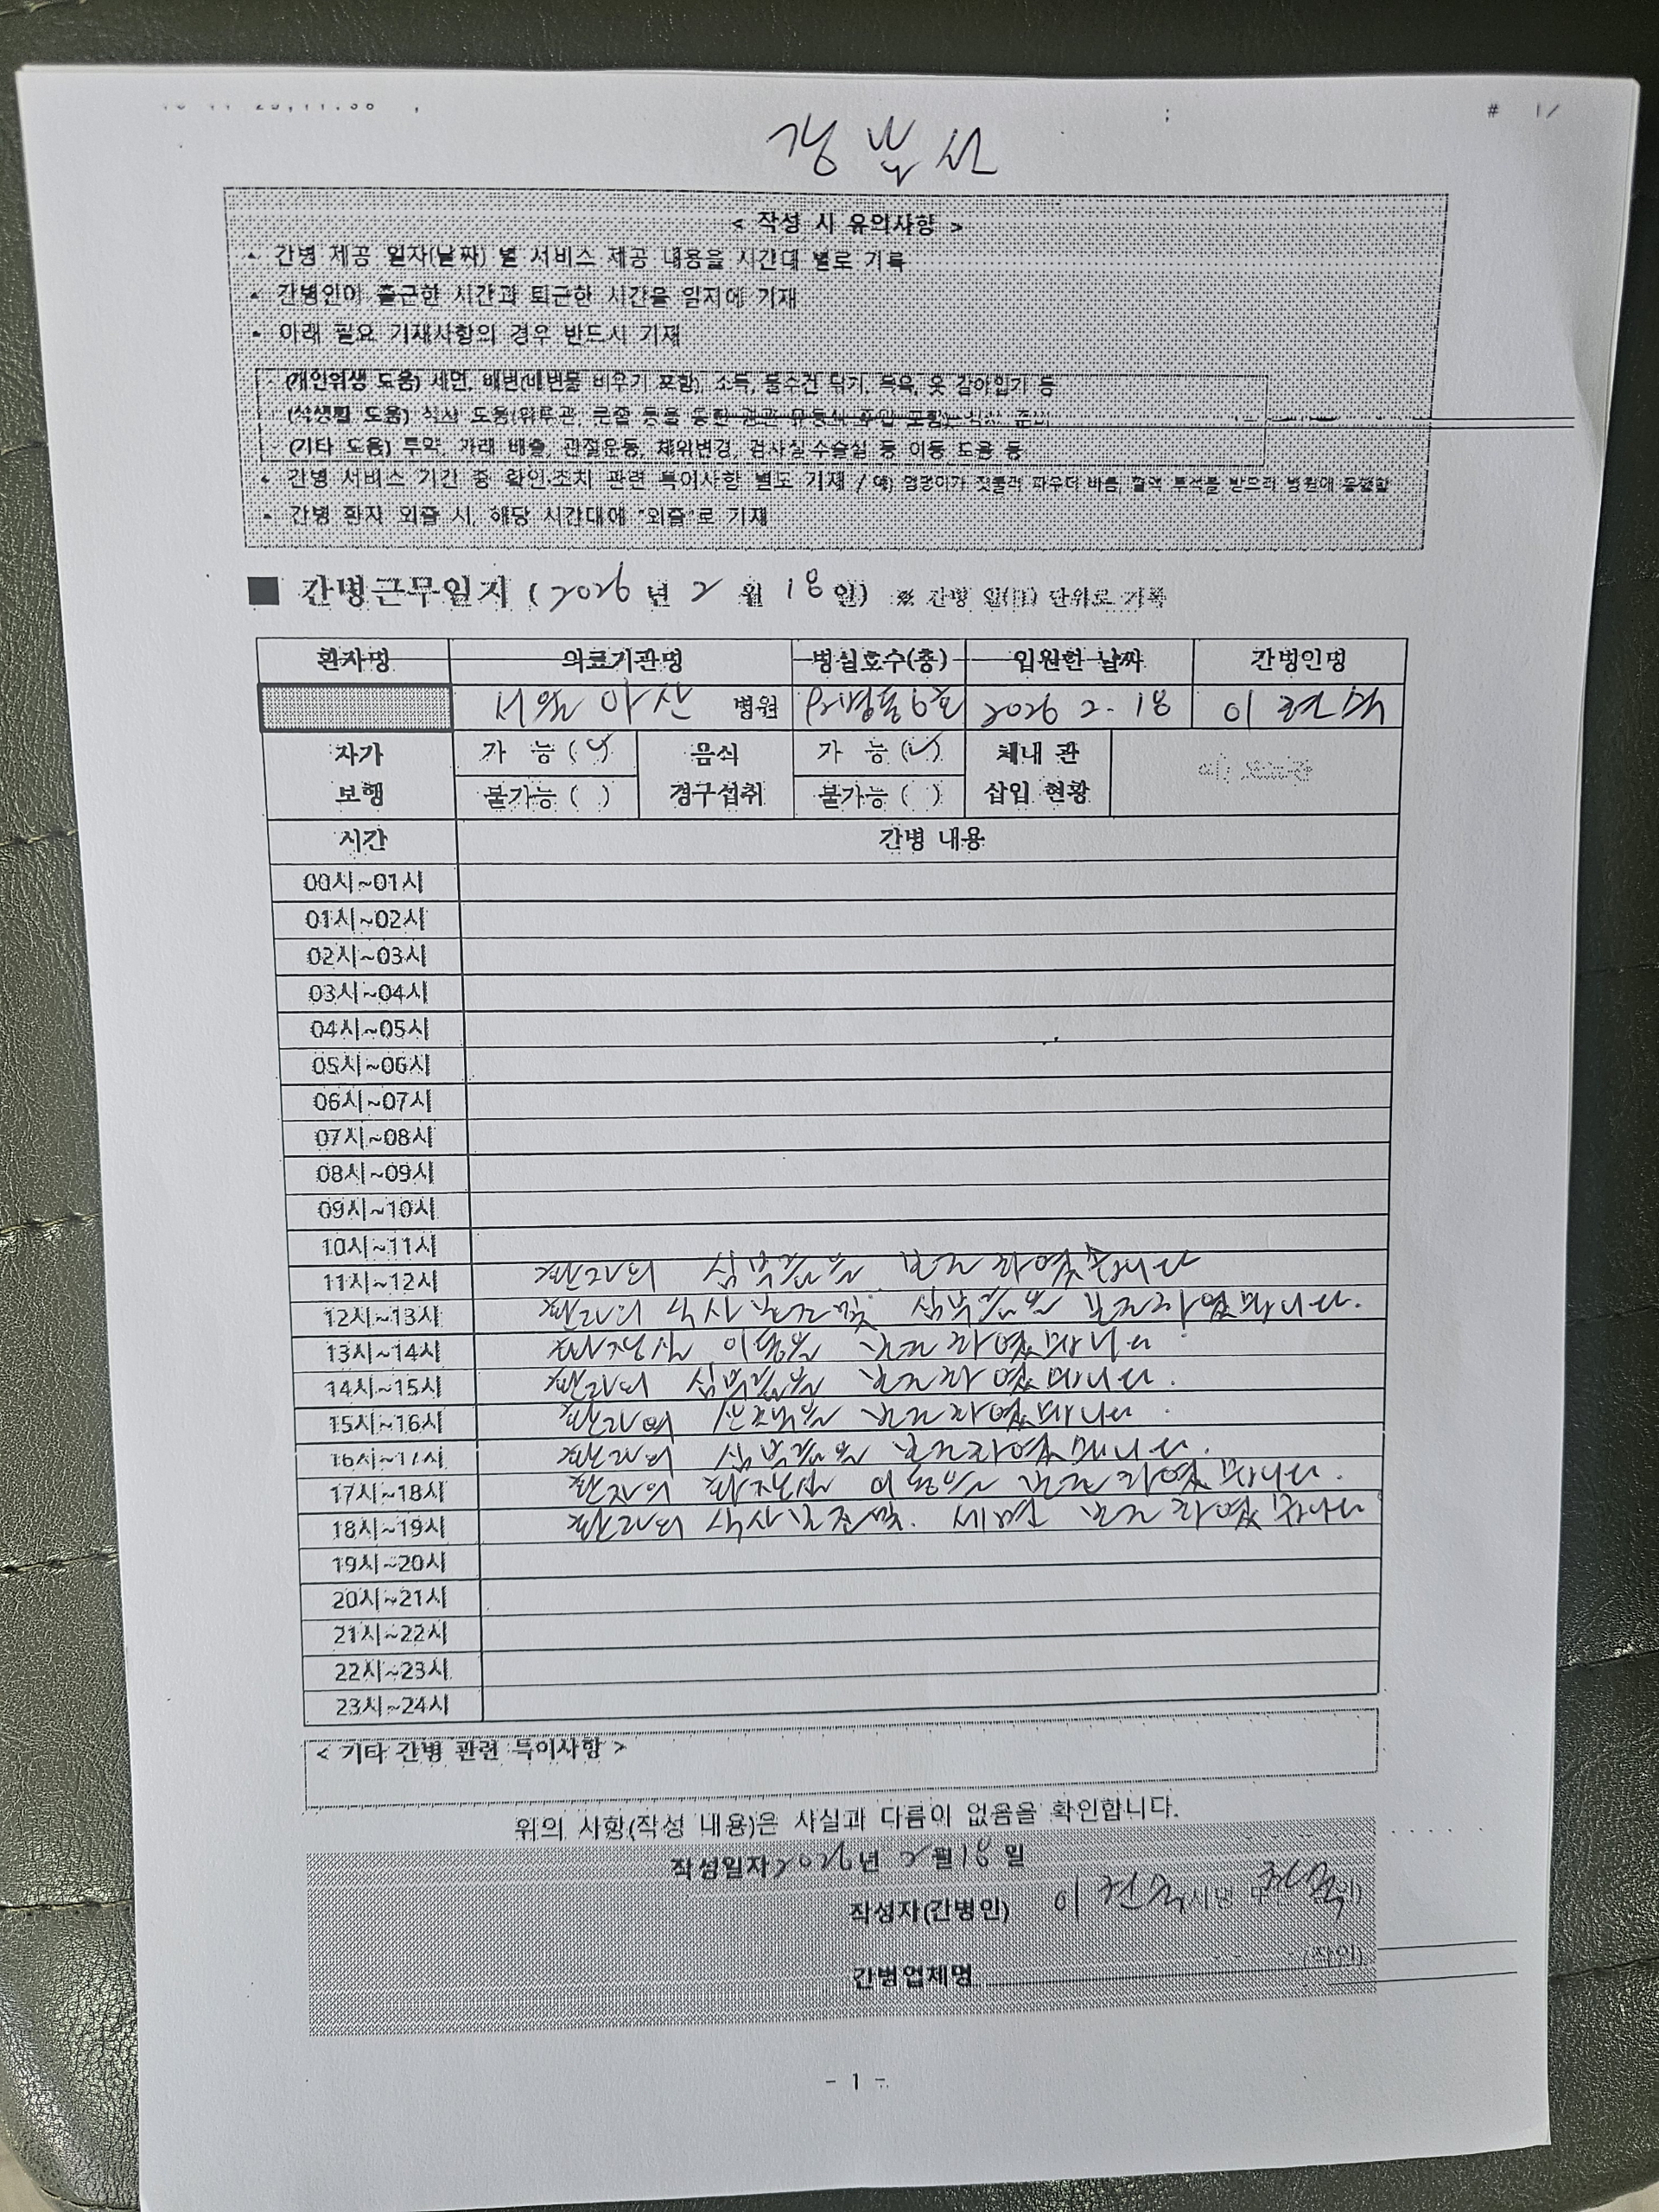 강부산
< 작성 시 유의사항 >
- 간병 제공 일자(날짜) 별 서비스 제공 내용을 시간대 별로 기록
- 간병인이 출근한 시간과 퇴근한 시간을 일지에 기재
- 아래 필요 기재사항의 경우 반드시 기재
(개인위생 도움) 세면, 배변(배변물 비우기 포함), 소독, 물수건 닦기, 목욕, 옷 갈아입기 등
(식생활 도움) 식사 도움(위루관, 콧줄 등을 통한 경관 유동식 주입 포함), 식사 준비
(기타 도움) 투약, 가래 배출, 관절운동, 체위변경, 검사실·수술실 등 이동 도움 등
- 간병 서비스 기간 중 확인·조치 관련 특이사항 별도 기재 / 예) 엉덩이가 짓물러 파우더 바름, 혈액 투석를 받으러 병원에 동행함
- 간병 환자 외출 시, 해당 시간대에 "외출"로 기재
■ 간병근무일지 ( 2026 년 2 월 18 일) ※ 간병 일(日) 단위로 기록
환자명 의료기관명 병실호수(층) 입원한 날짜 간병인명
서울 아산 병원 병동6호 2026 2. 18 이
자가 보행 가 능 (✓) 불가능 ( ) 음식 경구섭취 가 능 (✓) 불가능 ( ) 체내 관 삽입 현황
시간 간병 내용
00시~01시
01시~02시
02시~03시
03시~04시
04시~05시
05시~06시
06시~07시
07시~08시
08시~09시
09시~10시
10시~11시
11시~12시 환자의 심부름을 보조하였습니다
12시~13시 환자의 식사 보조및 심부름을 보조하였습니다.
13시~14시 화장실 이동을 보조하였습니다.
14시~15시 환자의 심부름을 보조하였습니다.
15시~16시 환자의 산책을 보조하였습니다.
16시~17시 환자의 심부름을 보조하였습니다.
17시~18시 환자의 화장실 이동을 보조하였습니다.
18시~19시 환자의 식사보조및. 세면 보조하였습니다
19시~20시
20시~21시
21시~22시
22시~23시
23시~24시
< 기타 간병 관련 특이사항 >
위의 사항(작성 내용)은 사실과 다름이 없음을 확인합니다.
작성일자 2026년 2월 18 일
작성자(간병인) 이
간병업체명 (직인)
- 1 -